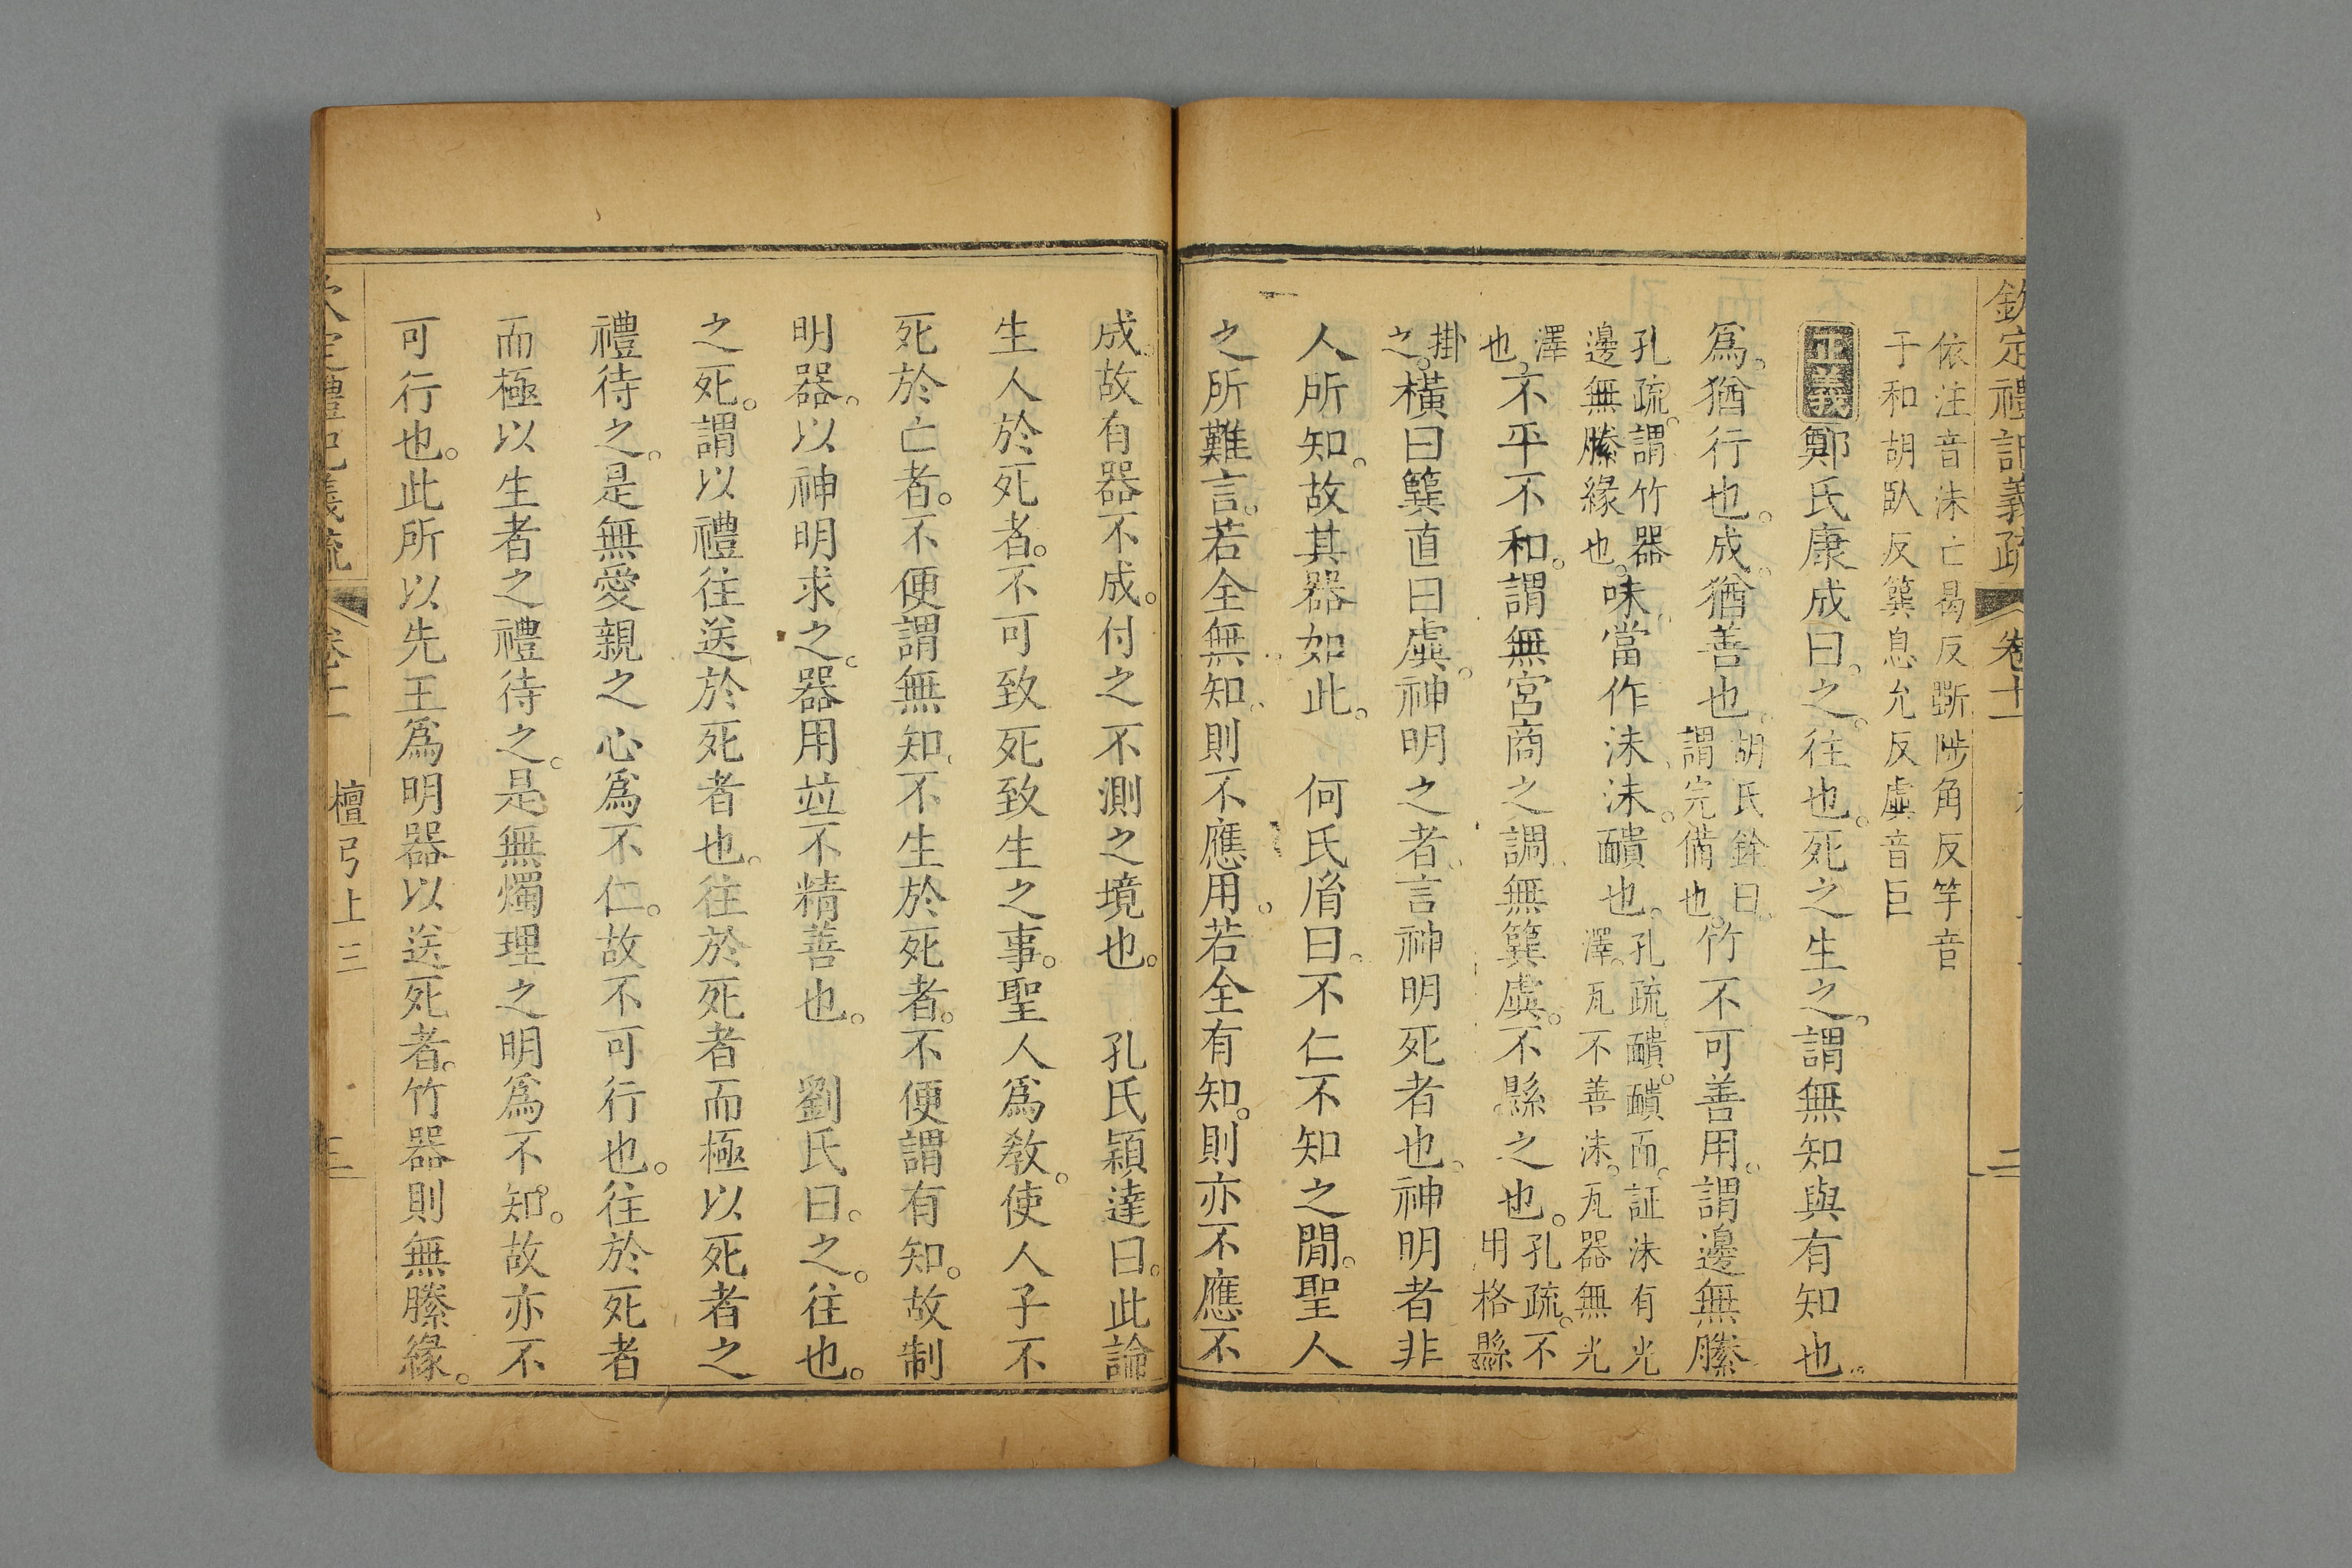 欽定禮記義疏 卷十一 二
依注音沬亡曷反斲陟角反竽音
于和胡臥反簨息允反虡音巨
正義鄭氏康成曰。之。往也。死之生之。謂無知與有知也。
爲。猶行也。成。猶善也。胡氏銓曰。謂完備也。竹不可善用。謂邊無縢
孔疏。謂竹器邊無縢緣也。味當作沬沬。靧也。孔疏靧。靧面。証沬有光澤。瓦不善沬。瓦器無光
澤也。不平不和。謂無宮商之調。無簨虡。不縣之也。孔疏。不用格縣
掛之。橫曰簨直曰虡。神明之者。言神明死者也。神明者非
人所知。故其器如此。 何氏胤曰。不仁不知之閒。聖人
之所難言。若全無知。則不應用。若全有知。則亦不應不
成。故有器不成。付之不測之境也。 孔氏穎達曰。此論
生人於死者。不可致死致生之事。聖人爲教。使人子不
死於亡者。不便謂無知。不生於死者。不便謂有知。故制
明器。以神明求之。器用並不精善也。 劉氏曰。之。往也。
之死。謂以禮往送於死者也。往於死者而極以死者之
禮待之。是無愛親之心爲不仁。故不可行也。往於死者
而極以生者之禮待之。是無燭理之明爲不知。故亦不
可行也。此所以先王爲明器以送死者。竹器則無縢緣。
欽定禮記義疏 卷十一 檀弓上三 三